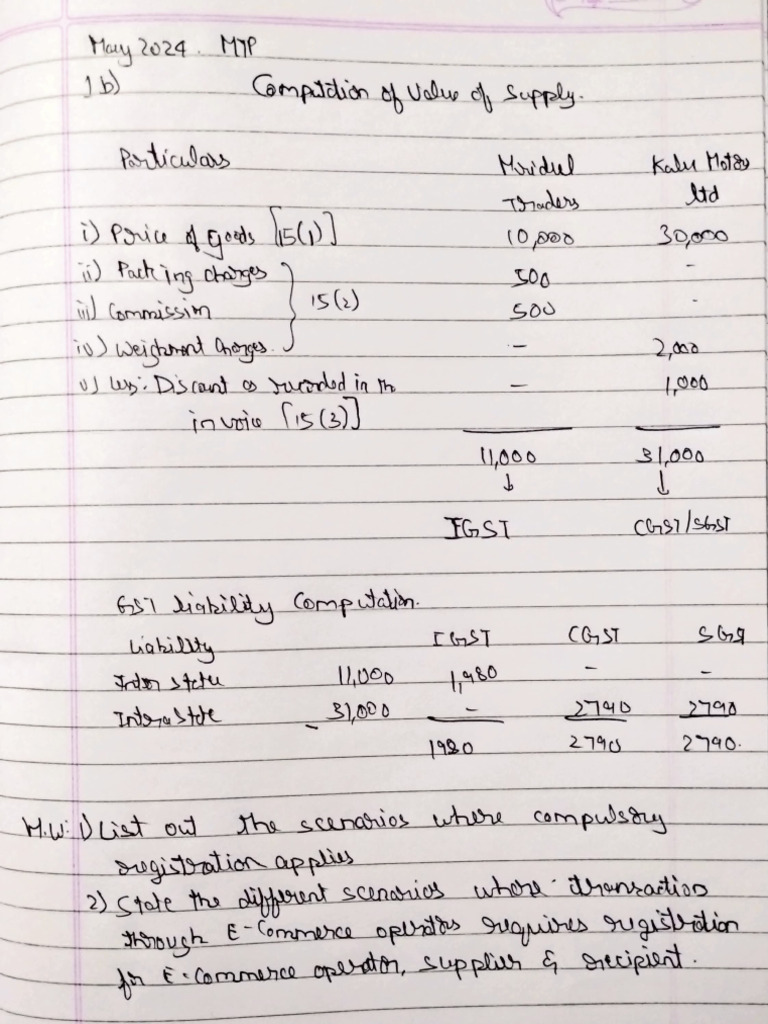 May 2024. MTP
1b) Computation of Value of Supply.
Particulars Mridul Kalu Motors
Traders ltd
i) Price of goods [15(1)] 10,000 30,000
ii) Packing charges 500 -
iii) Commission } 15(2) 500 -
iv) Weighment Charges. - 2,000
v) Less: Discount as recorded in the - 1,000
invoice [15(3)]
11,000 31,000
↓ ↓
IGST CGST/SGST
GST liability Computation.
Liability IGST CGST SGST
Inter state 11,000 1,980 - -
Intra state 31,000 - 2790 2790
1980 2790 2790.
H.W: 1) List out the scenarios where compulsory
registration applies
2) State the different scenarios where transaction
through E-Commerce operators requires registration
for E-Commerce operator, supplier & recipient.